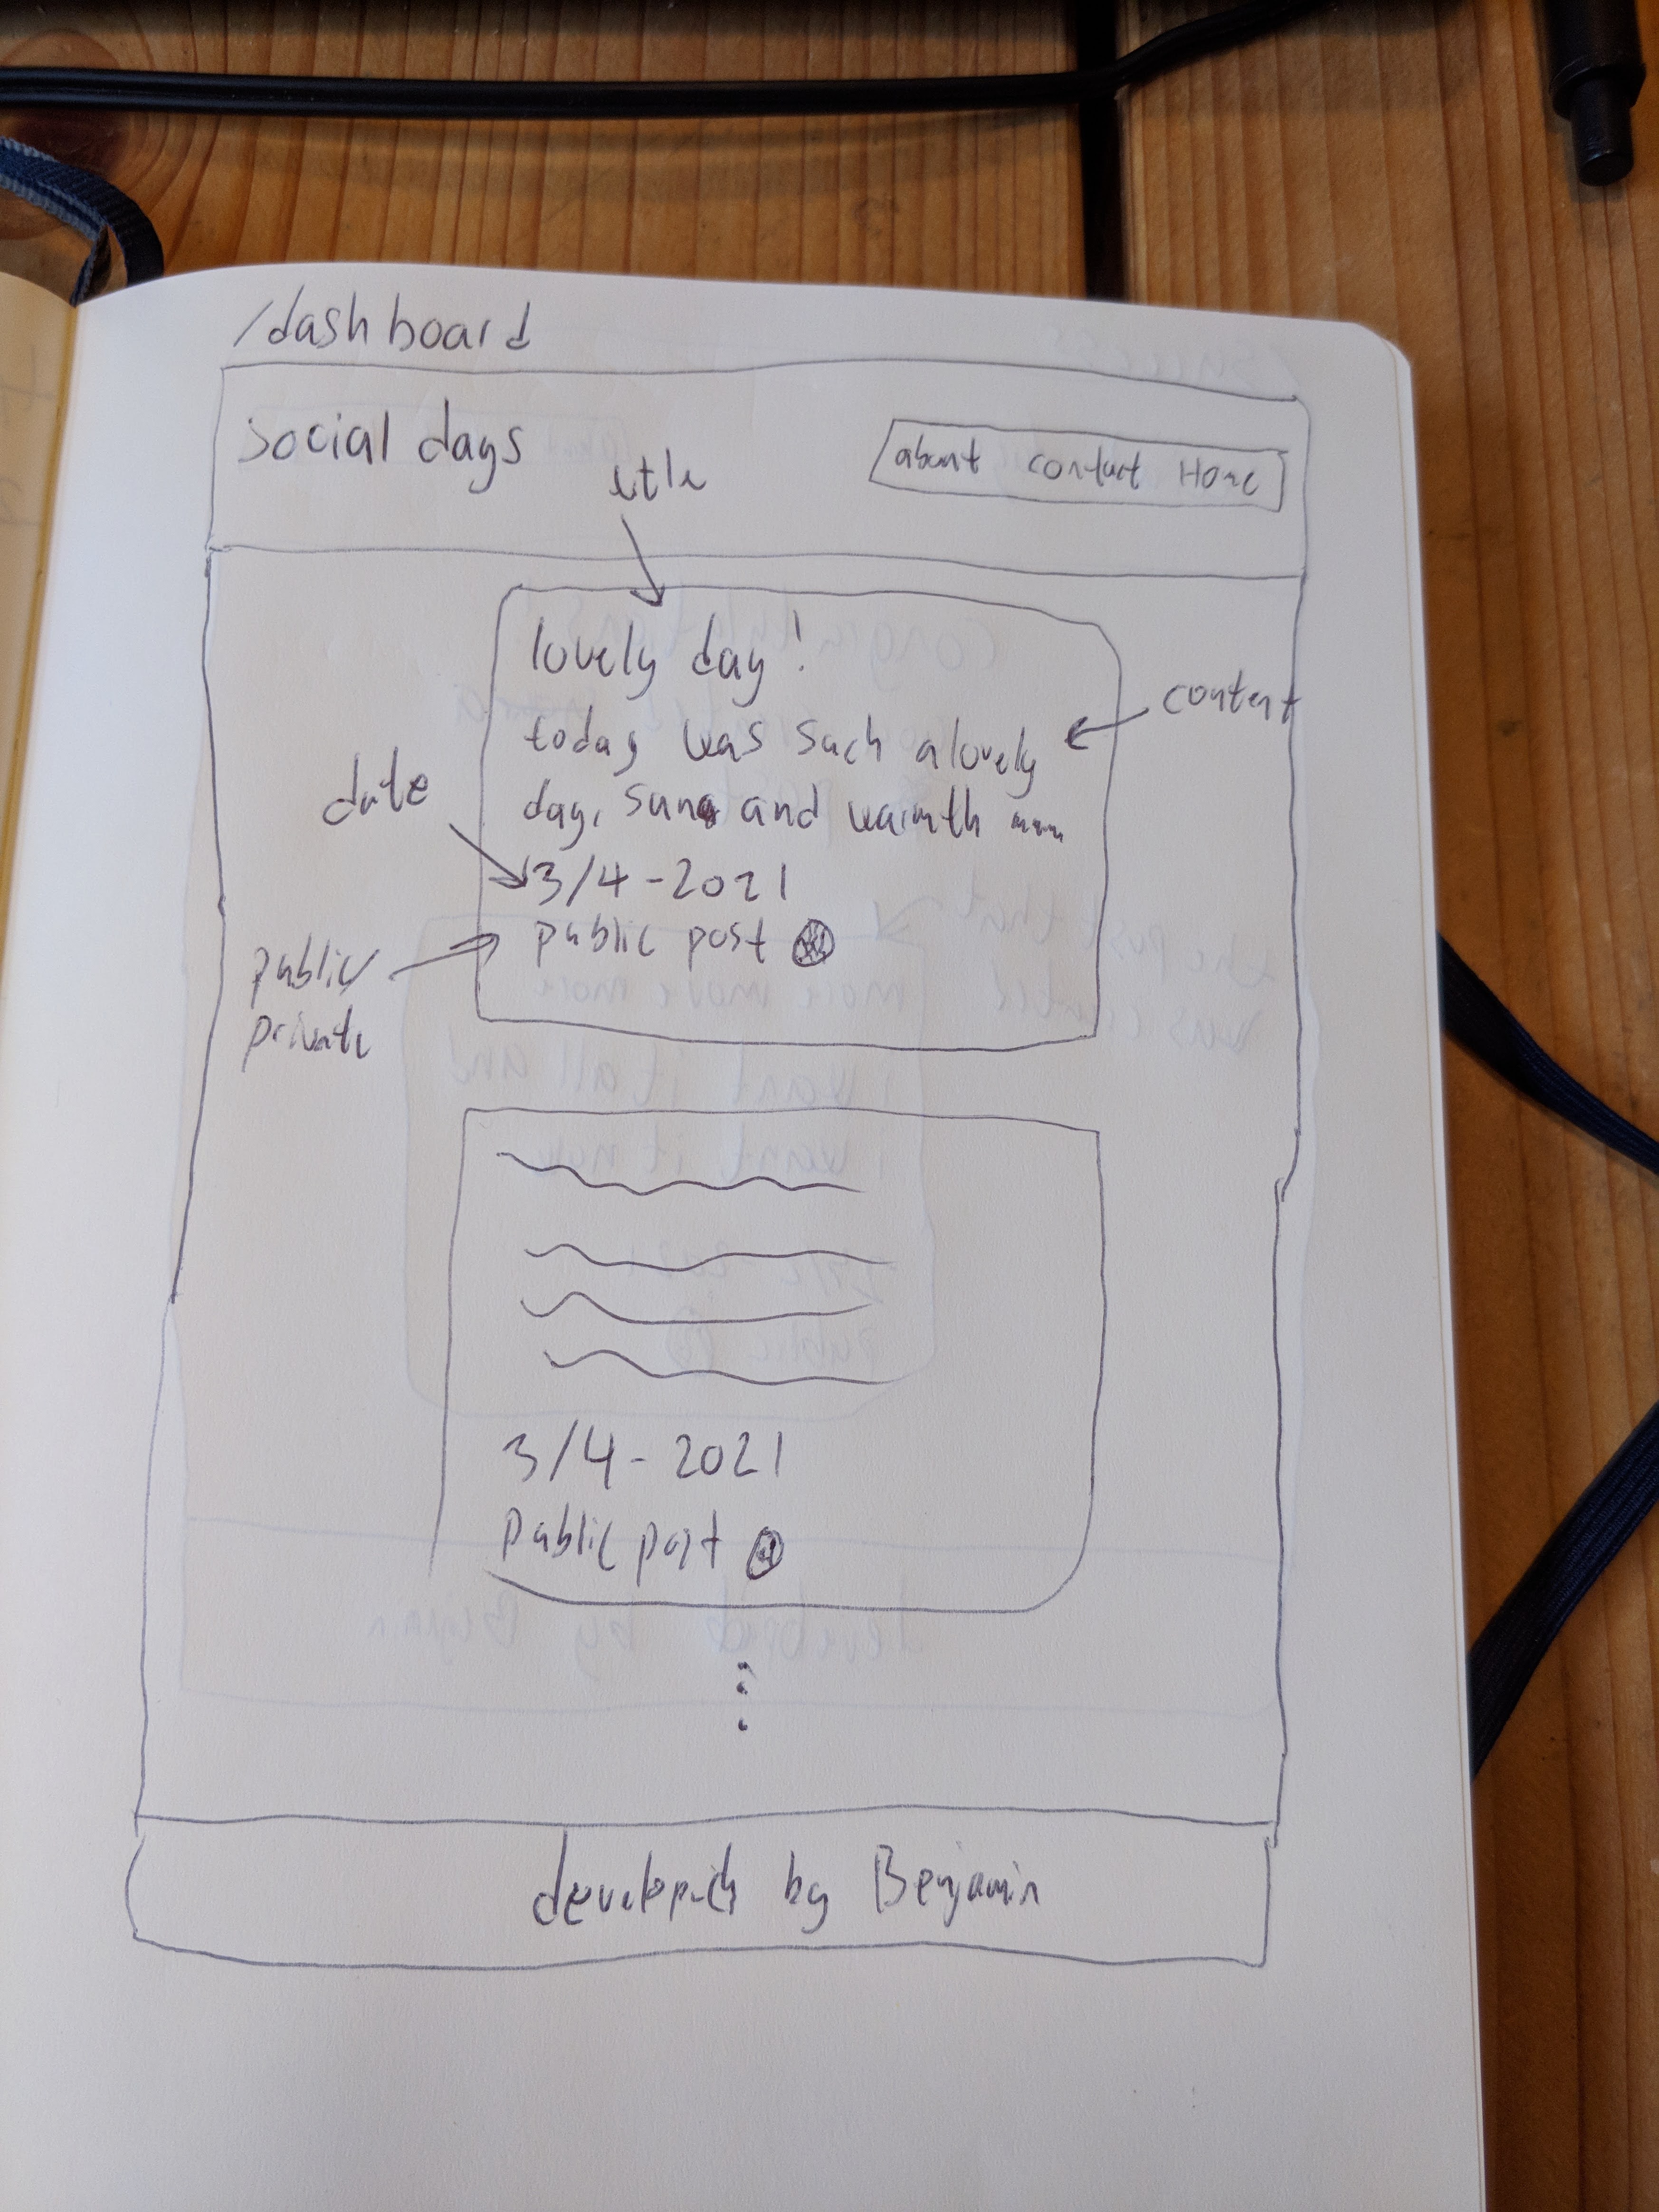 /dashboard
social days
about contact Home
title
lovely day!
today was such a lovely
content
day, sun and warmth
date
3/4-2021
public post
public/
private
3/4-2021
public post
by Benjamin